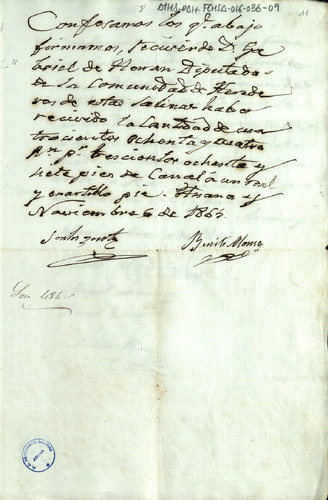 ATHA-DAH-FCHSA-016-036-09
11
Confesamos los q.e abajo
firmamos, recivirde D. Ga
briel de Herran Diputado
de la Comunidad de Herede
ros de estas salinas haber
recivido la Cantidad de cua
trocientos ochenta y cuatro
R.s p.r trescientos ochenta y
siete pies de Carral á un real
y cuartillo pie. Anana y
Noviembre 6 de 1865
Benito Alonso
Son 484